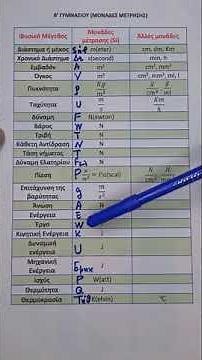 Β' ΓΥΜΝΑΣΙΟΥ (ΜΟΝΑΔΕΣ ΜΕΤΡΗΣΗΣ)
Φυσικό Μέγεθος Μονάδες μέτρησης (SI) Άλλες μονάδες
Διάστημα ή μήκος m(eter) cm, dm, Km
Χρονικό Διάστημα Δt s(econd) min, h
Εμβαδόν A m² cm², mm²
Όγκος V m³ cm³, mm³, ml, l
Πυκνότητα ρ Kg/m³
Ταχύτητα U m/s Km/h
Δύναμη F N(ewton)
Βάρος W N
Τριβή T N
Κάθετη Αντίδραση N N
Τάση νήματος T N
Δύναμη Ελατηρίου N
Πίεση P N/m² = Pa(scal)
Επιτάχυνση της βαρύτητας g m/s²
Άνωση A N
Ενέργεια E
Έργο W
Κινητική Ενέργεια K J
Δυναμική ενέργεια U J
Μηχανική Ενέργεια Εμηχ J
Ισχύς P W(att)
Θερμότητα Q J
Θερμοκρασία K(elvin) °C